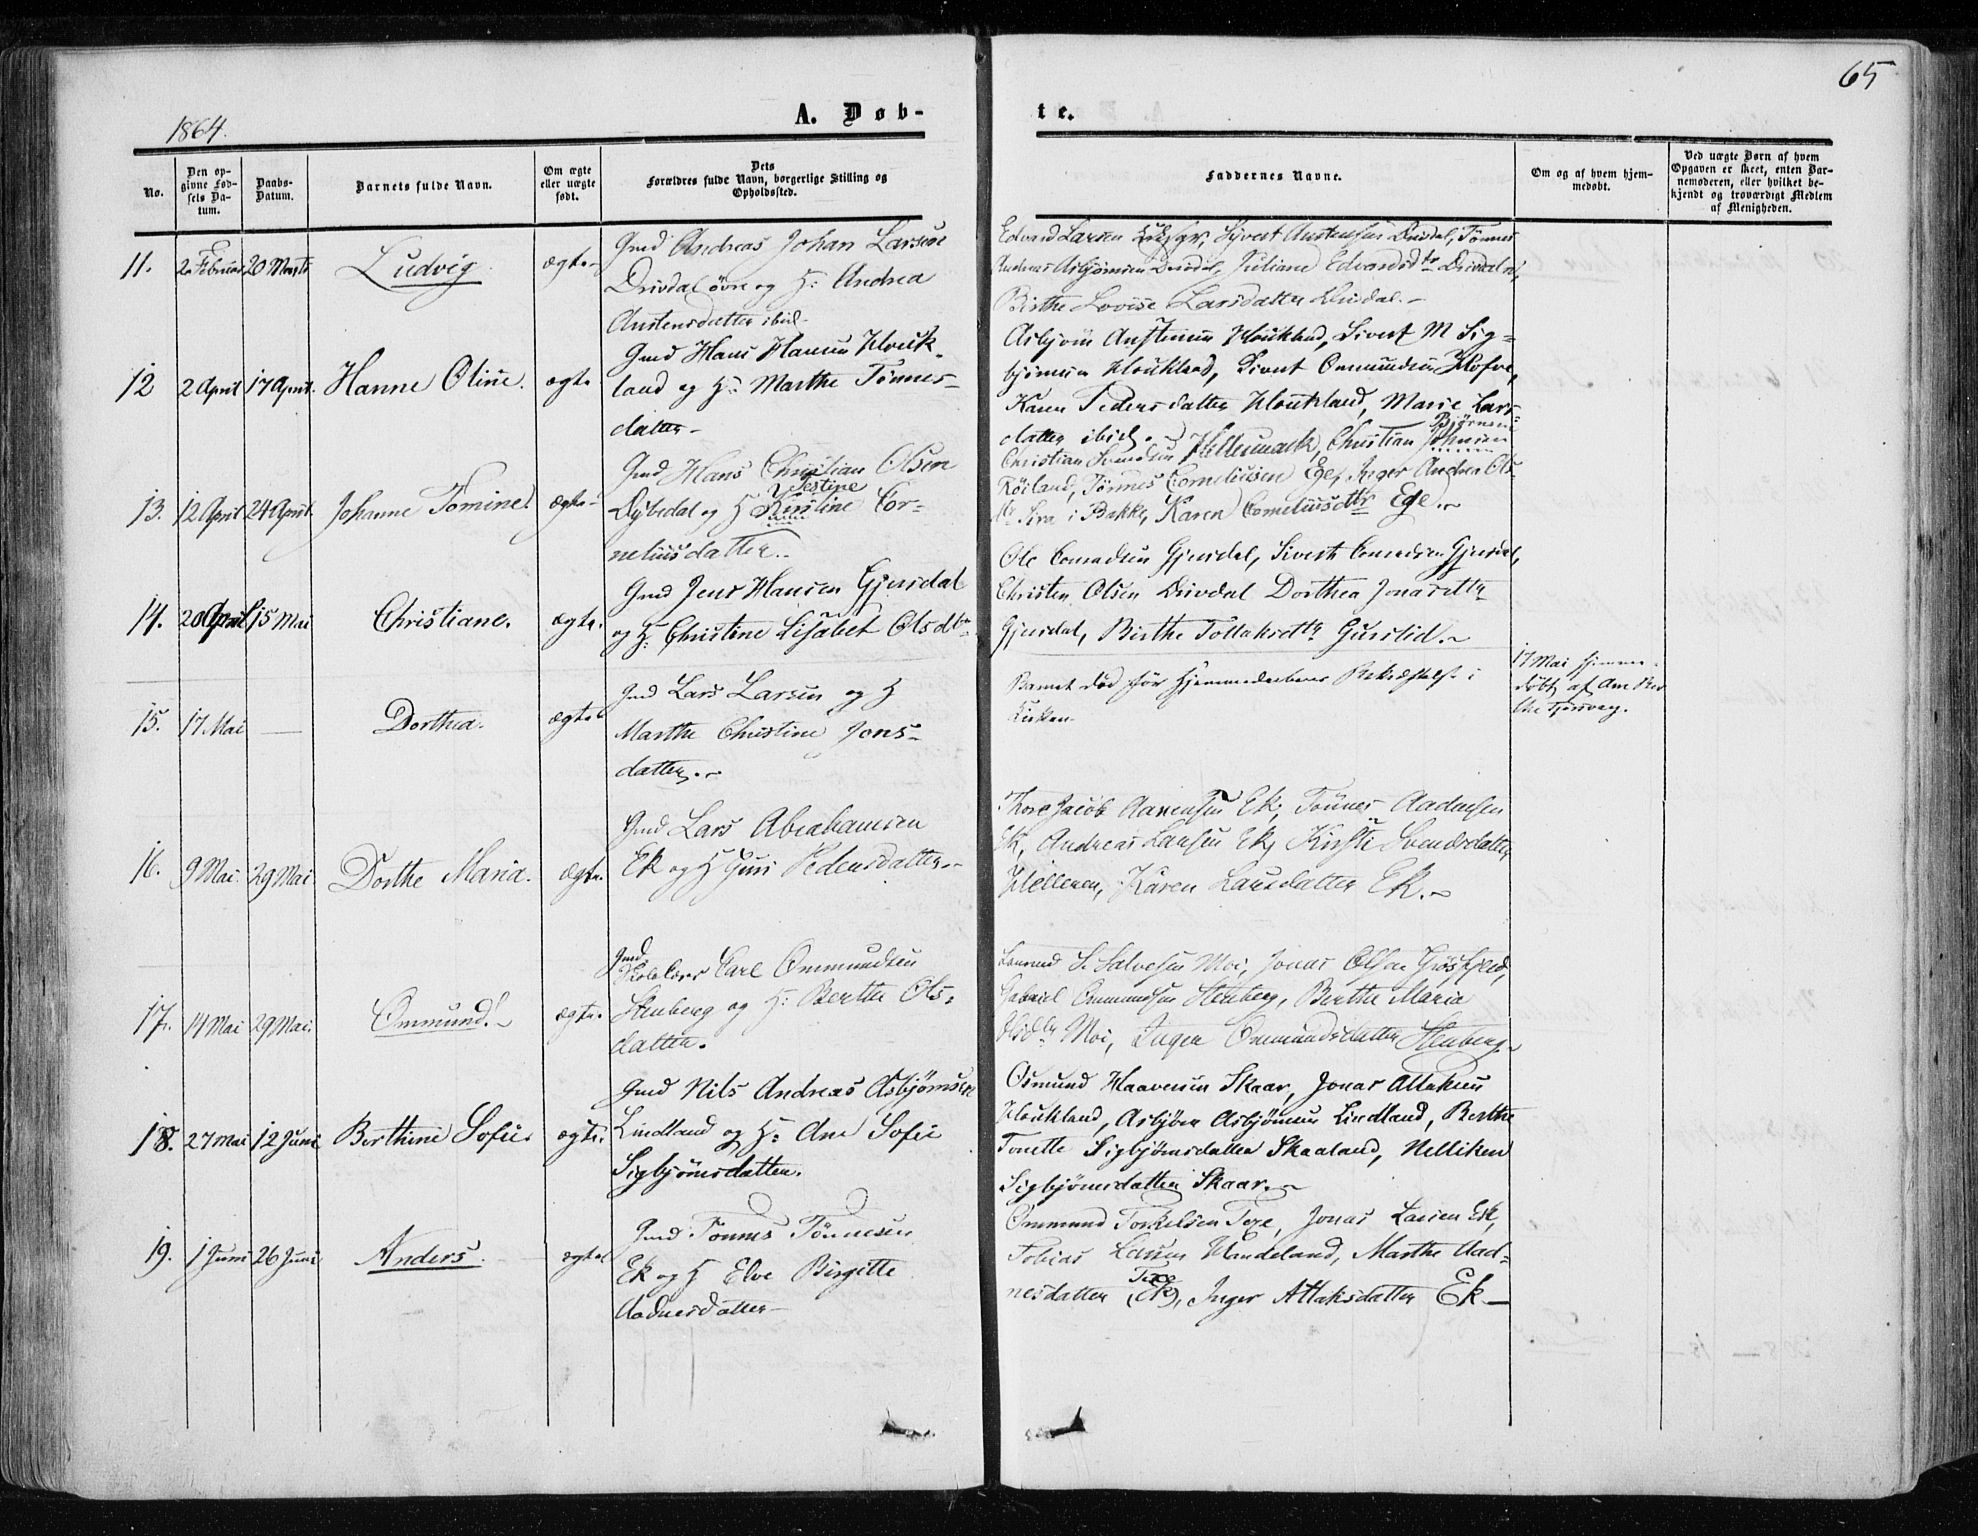 65
1864.
A. Døb-
te.
No.
Den op-
givne Fød-
sels Da-
tum.
Daabs-
Datum.
Barnets fulde Navn.
Om ægte
eller uægte
født.
Dets
Forældres fulde Navn, borgerlige Stilling og
Opholdssted.
Faddernes Navne.
Om og af hvem hjem-
medøbt.
Ved uægte Børn af hvem
Opgaven er skeet, enten Bar-
nemoderen, eller hvilket be-
kjendt og troværdigt Medlem
af Menigheden.
11. 2 Februar 20 Marts Ludvig. ægte
Gmd Andreas Johan Larsen
Drivdal øvre og H: Andrea
Austensdatter ibid.
Edvard Larsen Sivert Austensen Drivdal, Tønnes
Andreas Asbjørnsen Drivdal, Juliane Edvardsdtr Drivdal
Birthe Lovise Larsdatter Drivdal.
12 2 April 17 April. Hanne Oline. ægte
Gmd Hans Hansen Houk-
land og H: Marthe Tønnes-
datter
Asbjørn Austensen Houkland, Sivert M Sig-
bjørnsen Houkland, Sivert Ommundsen
Karen Pedersdatter Houkland, Marie Lars-
datter ibid.
13. 12 April 24 April. Johanne Tomine ægte
Gmd Hans Christian Olsen
Dybedal og H Kirstine Cor-
Jestine
neliusdatter.
Christian Svendsen Hellesmark, Christian Johnsen
Bjørnsen
Røiland, Tønnes Corneliusen Ege, Inger Andrea Ols-
dtr Sira i Bakke, Karen Corneliusdtr Ege.
14. 20 April 15 Mai Christiane. ægte.
Gmd Jens Hansen Gjersdal
og H: Christine Lisabet Olsdtr
Ole Conradsen Gjersdal, Sivert Conradsen Gjersdal,
Christen Olsen Drivdal Dorthea Jonasdtr
Gjersdal, Birthe Tollaksdtr Gurslid.
15. 17 Mai — Dorthea. ægte
Gmd Lars Larsen og H
Marthe Christine Jons-
datter.
Barnet død før Hjemmedaabens Bekræftelse i
Kirken.
17 Mai hjemme-
døbt af Ane Ber-
the
16. 9 Mai. 29 Mai Dorthe Maria. ægte.
Gmd Lars Abrahamsen
Ek og H Guri Pedersdatter.
Thore Jacob Aanensen Ek, Tønnes Aadnesen
Ek, Andreas Larsen Ek, Kirsti Svendsdatter
Helleren, Karen Larsdatter Ek.
17. 14 Mai 29 Mai. Ommund. ægte.
Gmd.
Skolelærer Carl Ommundsen
Stenberg og H: Berthe Ols-
datter.
S. Salvesen Moi, Jonas Olsen Grøsfjeld,
Gabriel Ommundsen Stenberg, Berthe Maria
Olsdtr Moi, Inger Ommundsdatter Stenberg
18. 27 Mai 12 Juni Berthine Sofie ægte.
Gmd Nils Andreas Asbjørnsen
Lindland og H: Ane Sofie
Sigbjørnsdatter.
Osmund Haaversen Skaar, Jonas Attaksen
Houkland, Asbjørn Asbjørnsen Lindland, Berthe
Tonette Sigbjørnsdatter Skaaland, Nelliken
Sigbjørnsdatter Skaar.
19. 1 Juni 26 Juni Anders. ægte
Gmd Tønnes Tønnesen
Ek og H Elve Birgitte
Aadnesdatter
Ommund Torkelsen Texe, Jonas Larsen Ek,
Tobias Larsen Handeland, Marthe Aad-
Texe
nesdatter (Ek), Inger Attaksdatter Ek